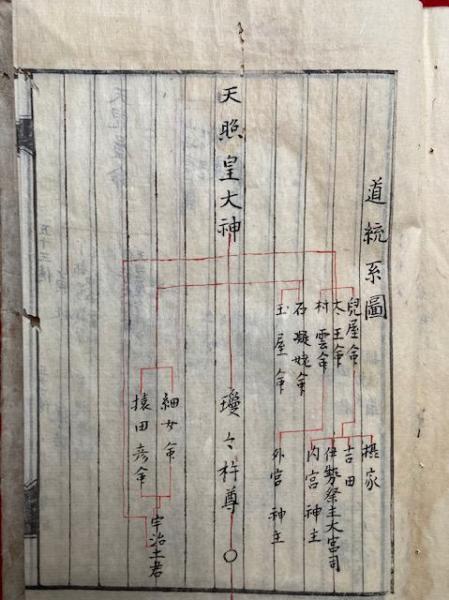 道統系圖
兒屋命
太玉命
村雲命
石凝姥命
玉屋命
攝家
吉田
伊勢祭主大宮司
内宮神主
外宮神主
天照皇大神
瓊々杵尊
細女命
猿田彦命
宇治土君